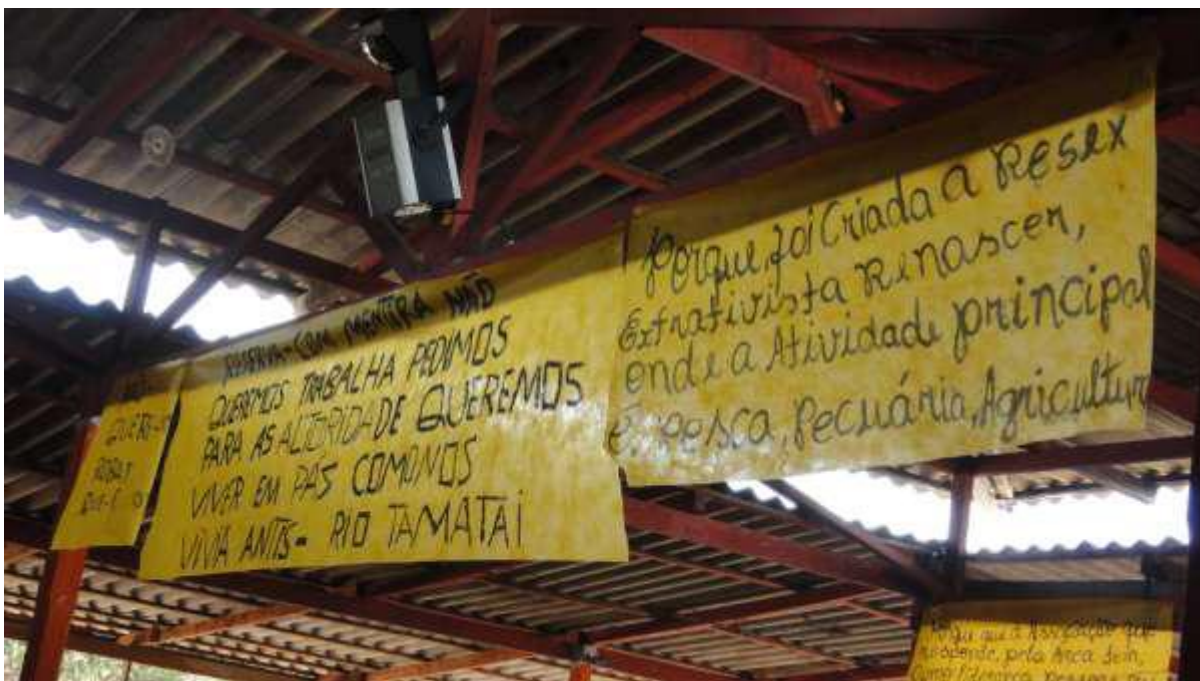 QUERE
ROBA
RESERVA-COM MENTIRA NÃO
QUEREMOS TRABALHA PEDIMOS
PARA AS ALTORIDADE QUEREMOS
VIVER EM PAS COMONOS
VIVIA ANTIS- RIO TAMATAI
Porque foi Criada a Resex
Extrativista Renascer,
onde a Atividade principal
é pesca, Pecuária, Agricultur
Porque a Associação que
responde pela Área tem